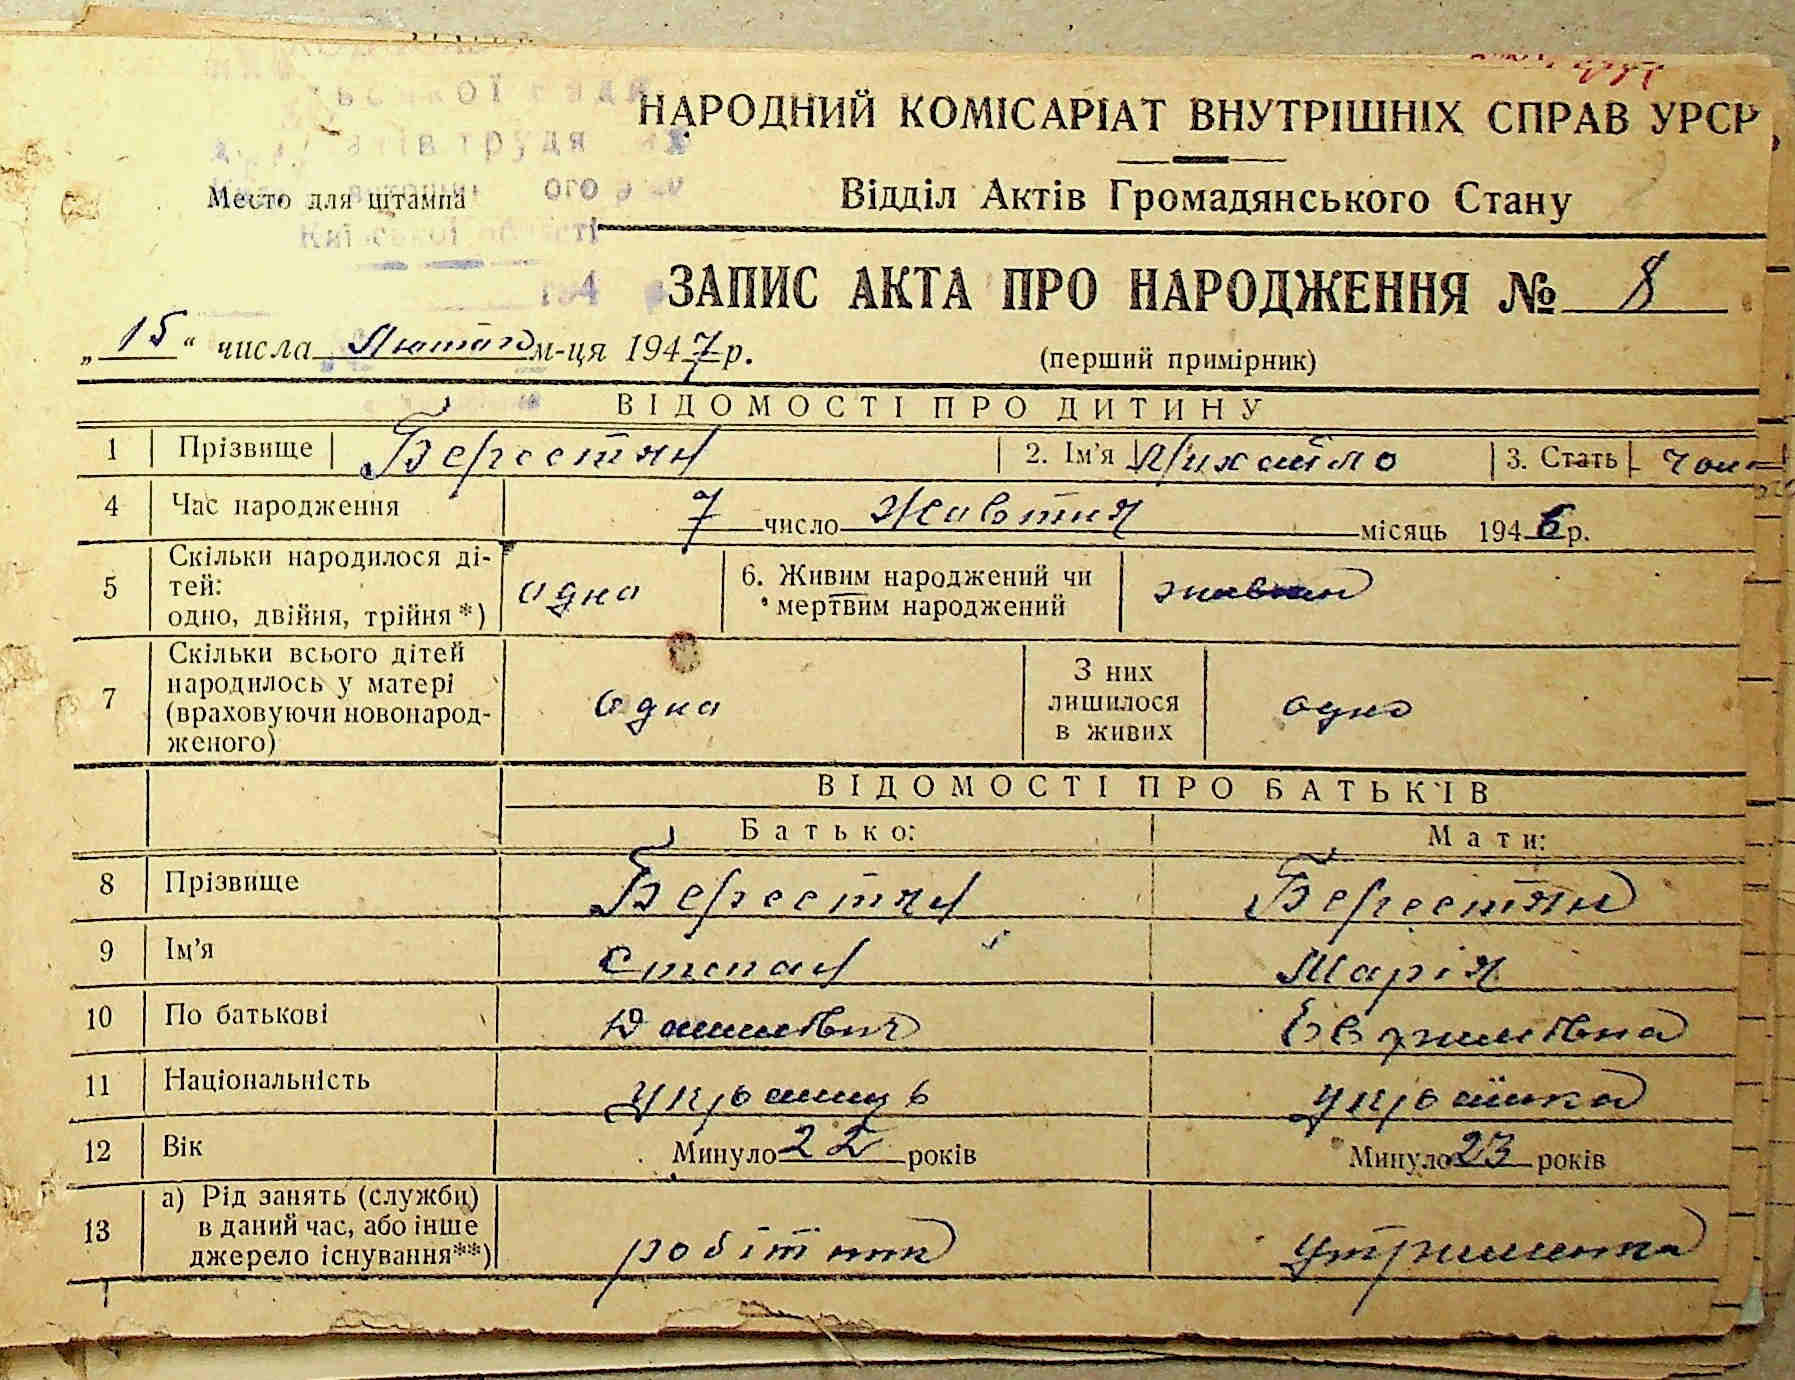 НАРОДНИЙ КОМІСАРІАТ ВНУТРІШНІХ СПРАВ УРСР
Место для штампа
Відділ Актів Громадянського Стану
Київської області
194
ЗАПИС АКТА ПРО НАРОДЖЕННЯ № 8
„15“ числа Лютого м-ця 1947 р.
(перший примірник)
ВІДОМОСТІ ПРО ДИТИНУ
1 Прізвище Берестян 2. Ім'я Михайло 3. Стать чол
4 Час народження 7 число Жовтня місяць 1946 р.
5 Скільки народилося ді-
тей:
одно, двійня, трійня*) одна 6. Живим народжений чи
мертвим народжений живим
7 Скільки всього дітей
народилось у матері
(враховуючи новонарод-
женого) одна З них
лишилося
в живих одно
ВІДОМОСТІ ПРО БАТЬКІВ
Батько: Мати:
8 Прізвище Берестян Берестян
9 Ім'я Степан Марія
10 По батькові Данилович
11 Національність Українець Українка
12 Вік Минуло 22 років Минуло 23 років
13 а) Рід занять (служби)
в даний час, або інше
джерело існування**) робітник утриманка